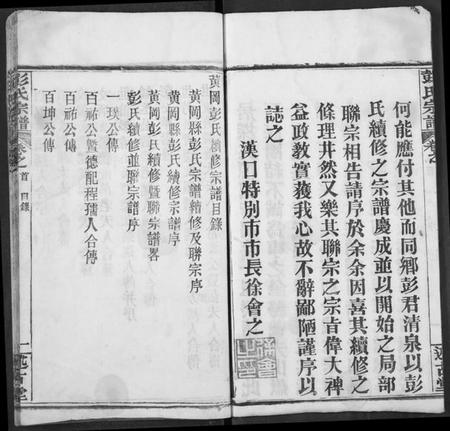 彭氏宗譜
卷之
何能應付其他而同鄉彭君清泉以彭
氏續修之宗譜慶成並以開始之局部
聯宗相告請序於余余因喜其續修之
條理井然又樂其聯宗之宗旨偉大裨
益政教實獲我心故不辭鄙陋謹序以
誌之
漢口特別市市長徐會之
述古堂
黃岡彭氏續修宗譜目錄
黃岡縣彭氏宗譜續修及聯宗序
黃岡縣彭氏續修宗譜序
黃岡彭氏續修暨聯宗譜畧
彭氏續修並聯宗譜序
一璞公傳
百祘公暨德配程孺人合傳
百祜公傳
百坤公傳
彭氏宗譜
卷之首 目錄
一
述古堂